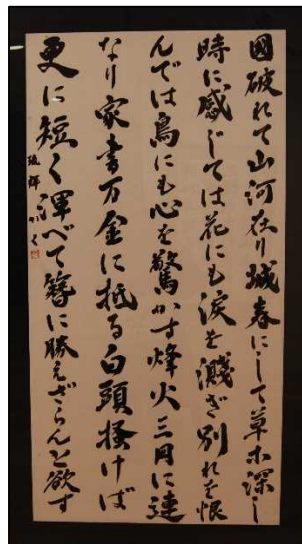 國破れて山河在り城春にして草木深し
時に感じては花にも涙を濺ぎ別れを恨
んでは鳥にも心を驚かす烽火三月に連
なり家書万金に抵る白頭掻けば
更に短く渾べて簪に勝えざらんと欲す